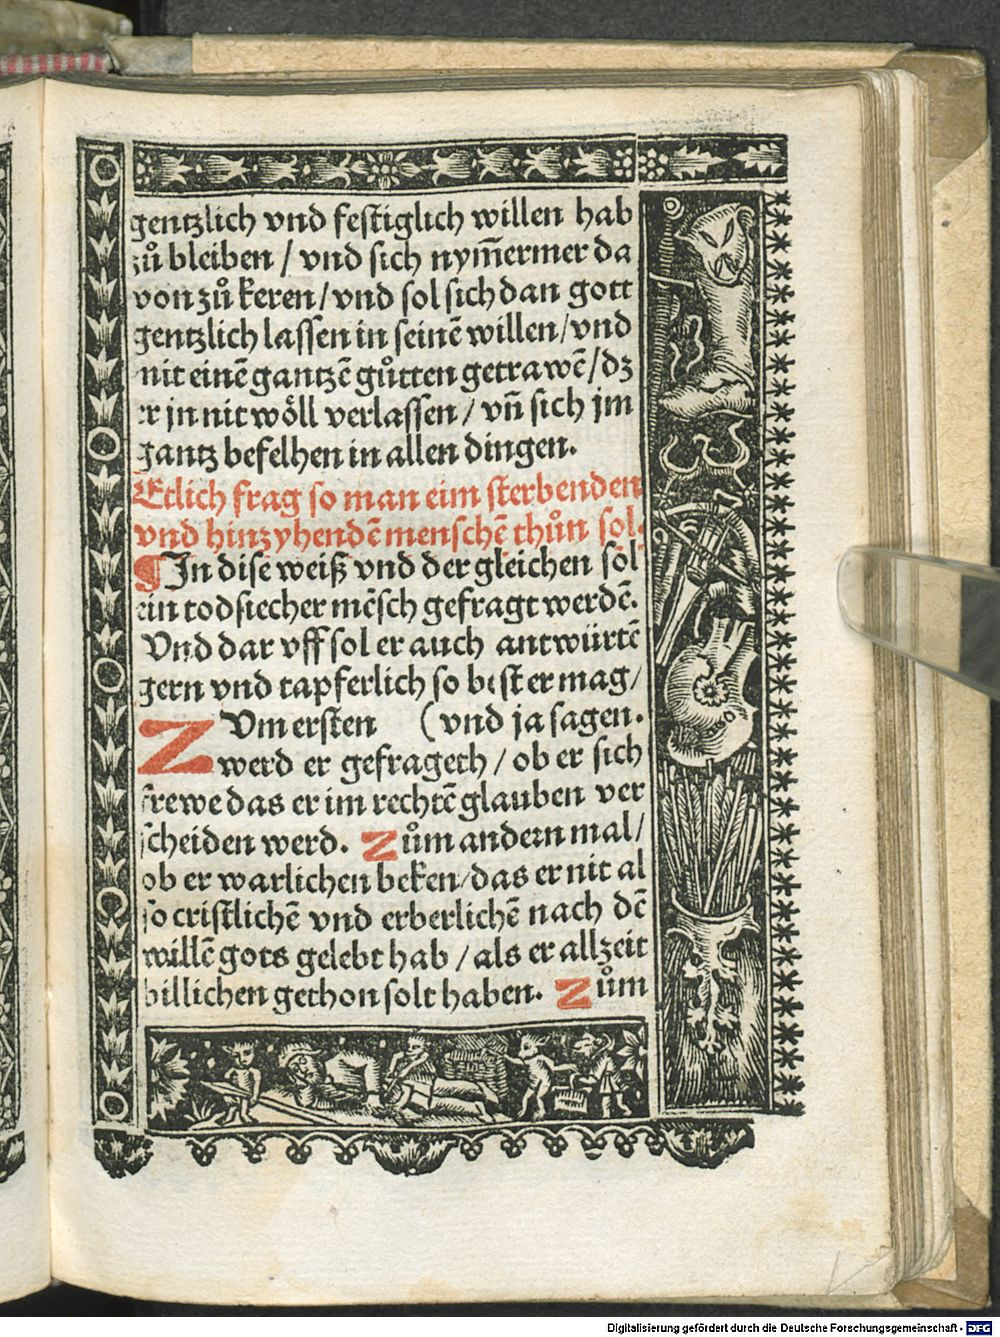 gentzlich vnd festiglich willen hab
zů bleiben / vnd sich nym̄ermer da
von zů keren / vnd sol sich dan gott
gentzlich lassen in seinē willen / vnd
mit einē gantzē gůtten getrawē / dz
er jn nit wöll verlassen / vn̄ sich jm
gantz befelhen in allen dingen.
Etlich frag so man eim sterbenden
vnd hinzyhendē menschē thůn sol.
¶ In dise weiß vnd der gleichen sol
ein todsiecher mēsch gefragt werdē.
Vnd dar vff sol er auch antwürtē
gern vnd tapferlich so best er mag /
ZVm ersten (vnd ja sagen.
werd er gefrageth / ob er sich
frewe das er im rechtē glauben ver
scheiden werd. Zům andern mal /
ob er warlichen beken / das er nit al
so cristlichē vnd erberlichē nach dē
willē gots gelebt hab / als er allzeit
billichen gethon solt haben. Zům
Digitalisierung gefördert durch die Deutsche Forschungsgemeinschaft - DFG